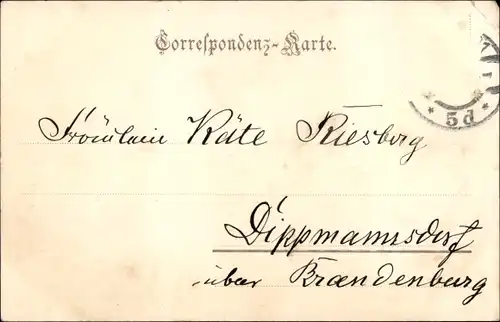 Correspondenz-Karte.
* 5d *
Fräulein Käte Riesberg
Dippmannsdorf
über Brandenburg